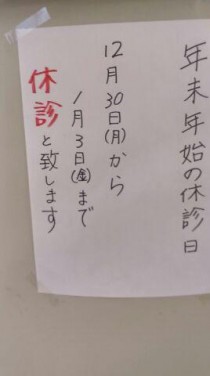 年末年始の休診日
12月30日(月)から
1月3日(金)まで
休診と致します